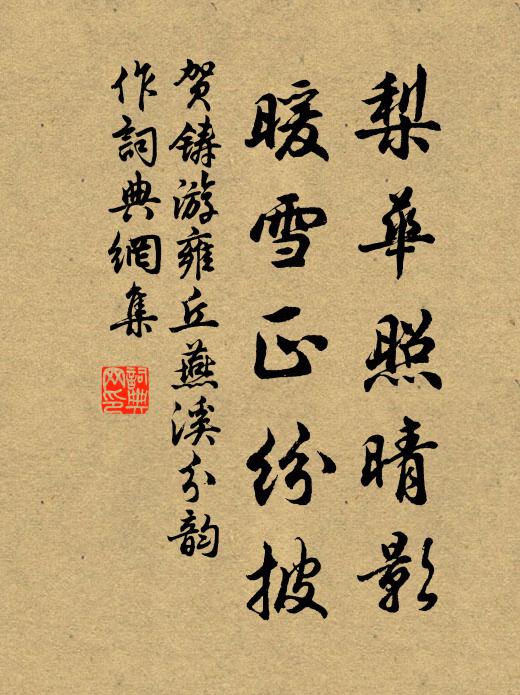 梨華照晴影
暖雪正紛披
贺鑄游雍丘燕溪分韵
作詞典網集
詞典
网印